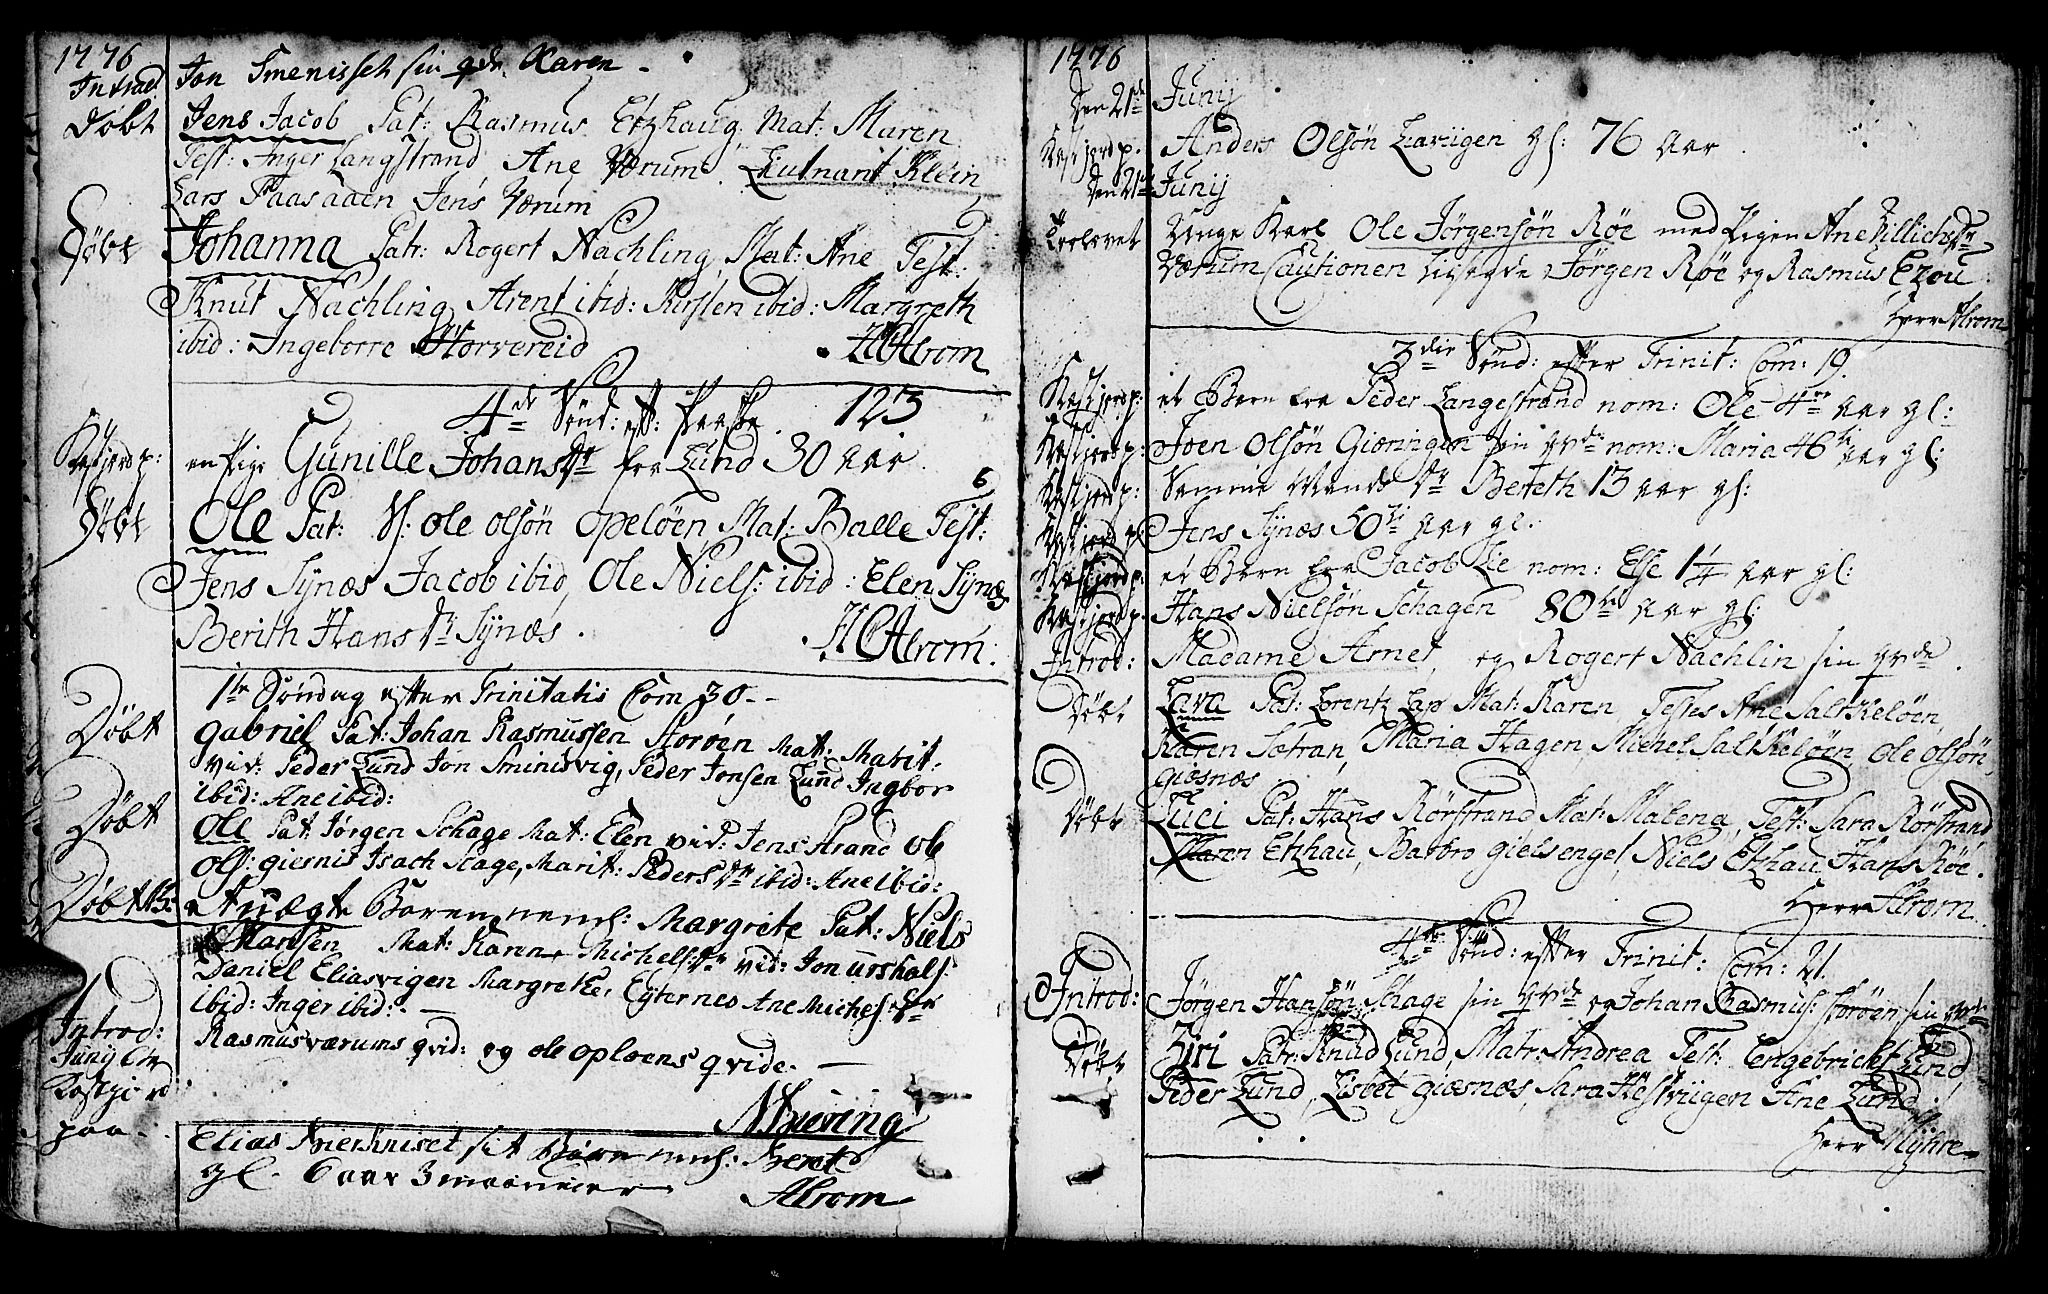 1776
Introd Jon Smenisset sin qde. Karen -
Døbt Jens Jacob Pat: Rasmus Etzhaug Mat: Maren
Test: Inger Langstrand, Ane Værum. Leutnant Klein
Lars Faasaaen Jens Værum
Døbt Johanna Pat: Rogert Nachling, Mat: Ane Test:
Knut Nachling, Arent ibid: Kirsten ibid: Margreth
ibid: Ingeborre Størvereid HCAlrom
4de Sønd: eft: Paaske. 123
Kastjord p: en Pige Gunille Johansdr fra Lund 30 aar.
Døbt Ole Pat: Sl: Ole Olsøn Opeløen, Mat: Balle Test:
Jens Synæs Jacob ibid, Ole Niels: ibid: Elen Synæs
Berith Hans dr Synæs. HCAlrom:
1te Søndag efter Trinitatis Com 30.-
Døbt Gabriel Pat: Johan Rasmussen Storøen Mat: Marit:
vid: Peder Lund Jon Sminisvig, Peder Jonsen Lund Ingbor
ibid: Ane ibid:
Døbt Ole Pat: Jørgen Schage Mat: Elen vid: Jens Strand Ole
Ols: giernis Isach Skage, Marit: Peders dr ibid: Ane ibid:
Døbt NB: et uægte Baren neml: Margrete Pat: Niels
Hansen Mat: Karen Michels: dr vid: Jon urshals
Daniel Eliasvigen Margrete, Eyternes Ane Michels: dr
ibid: Inger ibid: -
Introd: Rasmusværums qvid: og ole oploens qvide. -
Kastjord
paa - Elias sit Barn neml: Beret
gl. 6 aar 3 maaneder Alrom
1776
Den 21de Junij
Kastjord p. Anders Olsøn Laviigen gl: 76 aar.
Den 21de Junij
Troelovet Unge Karl Ole Jørgensøn Røe med Pigen Ane Zillichs dr
Værum Cautionen Jørgen Røe og Rasmus Ezou
Herr Alrom
3die Sønd: efter Trinit: Com: 19.
Kastjord p: et Barn fra Peder Langestrand nom: Ole 4re aar gl:
Kastjord p: Joen Olsøn Giæningen sin qvde nom: Maria 46 aar gl:
Kastjord p: Samme Mands dr Bereth 13 aar gl:
Kastjord p: Jens Synæs 50 aar gl.
Kastjord p: et Barn fra Jacob Lie nom: Else 1 1/4 aar gl:
Kastjord p: Hans Nielsøn Schagen 80 aar gl:
Introd: Madame Arnet, og Rogert Nachlin sin qvde.
Døbt Lava Pat: Lorentz Lap Mat: Karen, Testes Ane Saltkeløen,
Karen Sætran, Maria Hagen Michel Saltkeløen, Ole Olsøn,
giæsnæs
Døbt Lici Pat: Hans Rørstrand Mat: Malena, Test: Sara Rørstrand
Maren Etzhau, Barbro gielsengel, Niels Etzhau Hans Røe.
Herr Alrom
4de Sønd: efter Trinit: Com: 21.
Introd: Jørgen Hansøn Schage sin qvde og Johan Rasmus: storøen sin qvde
Døbt Ziri Patr: Knud Lund, Matr: Andrea Test: Engebricht Lund
Peder Lund, Lisbet giæsnæs, Sara Hestviigen Ane Lund.
Herr Myhre